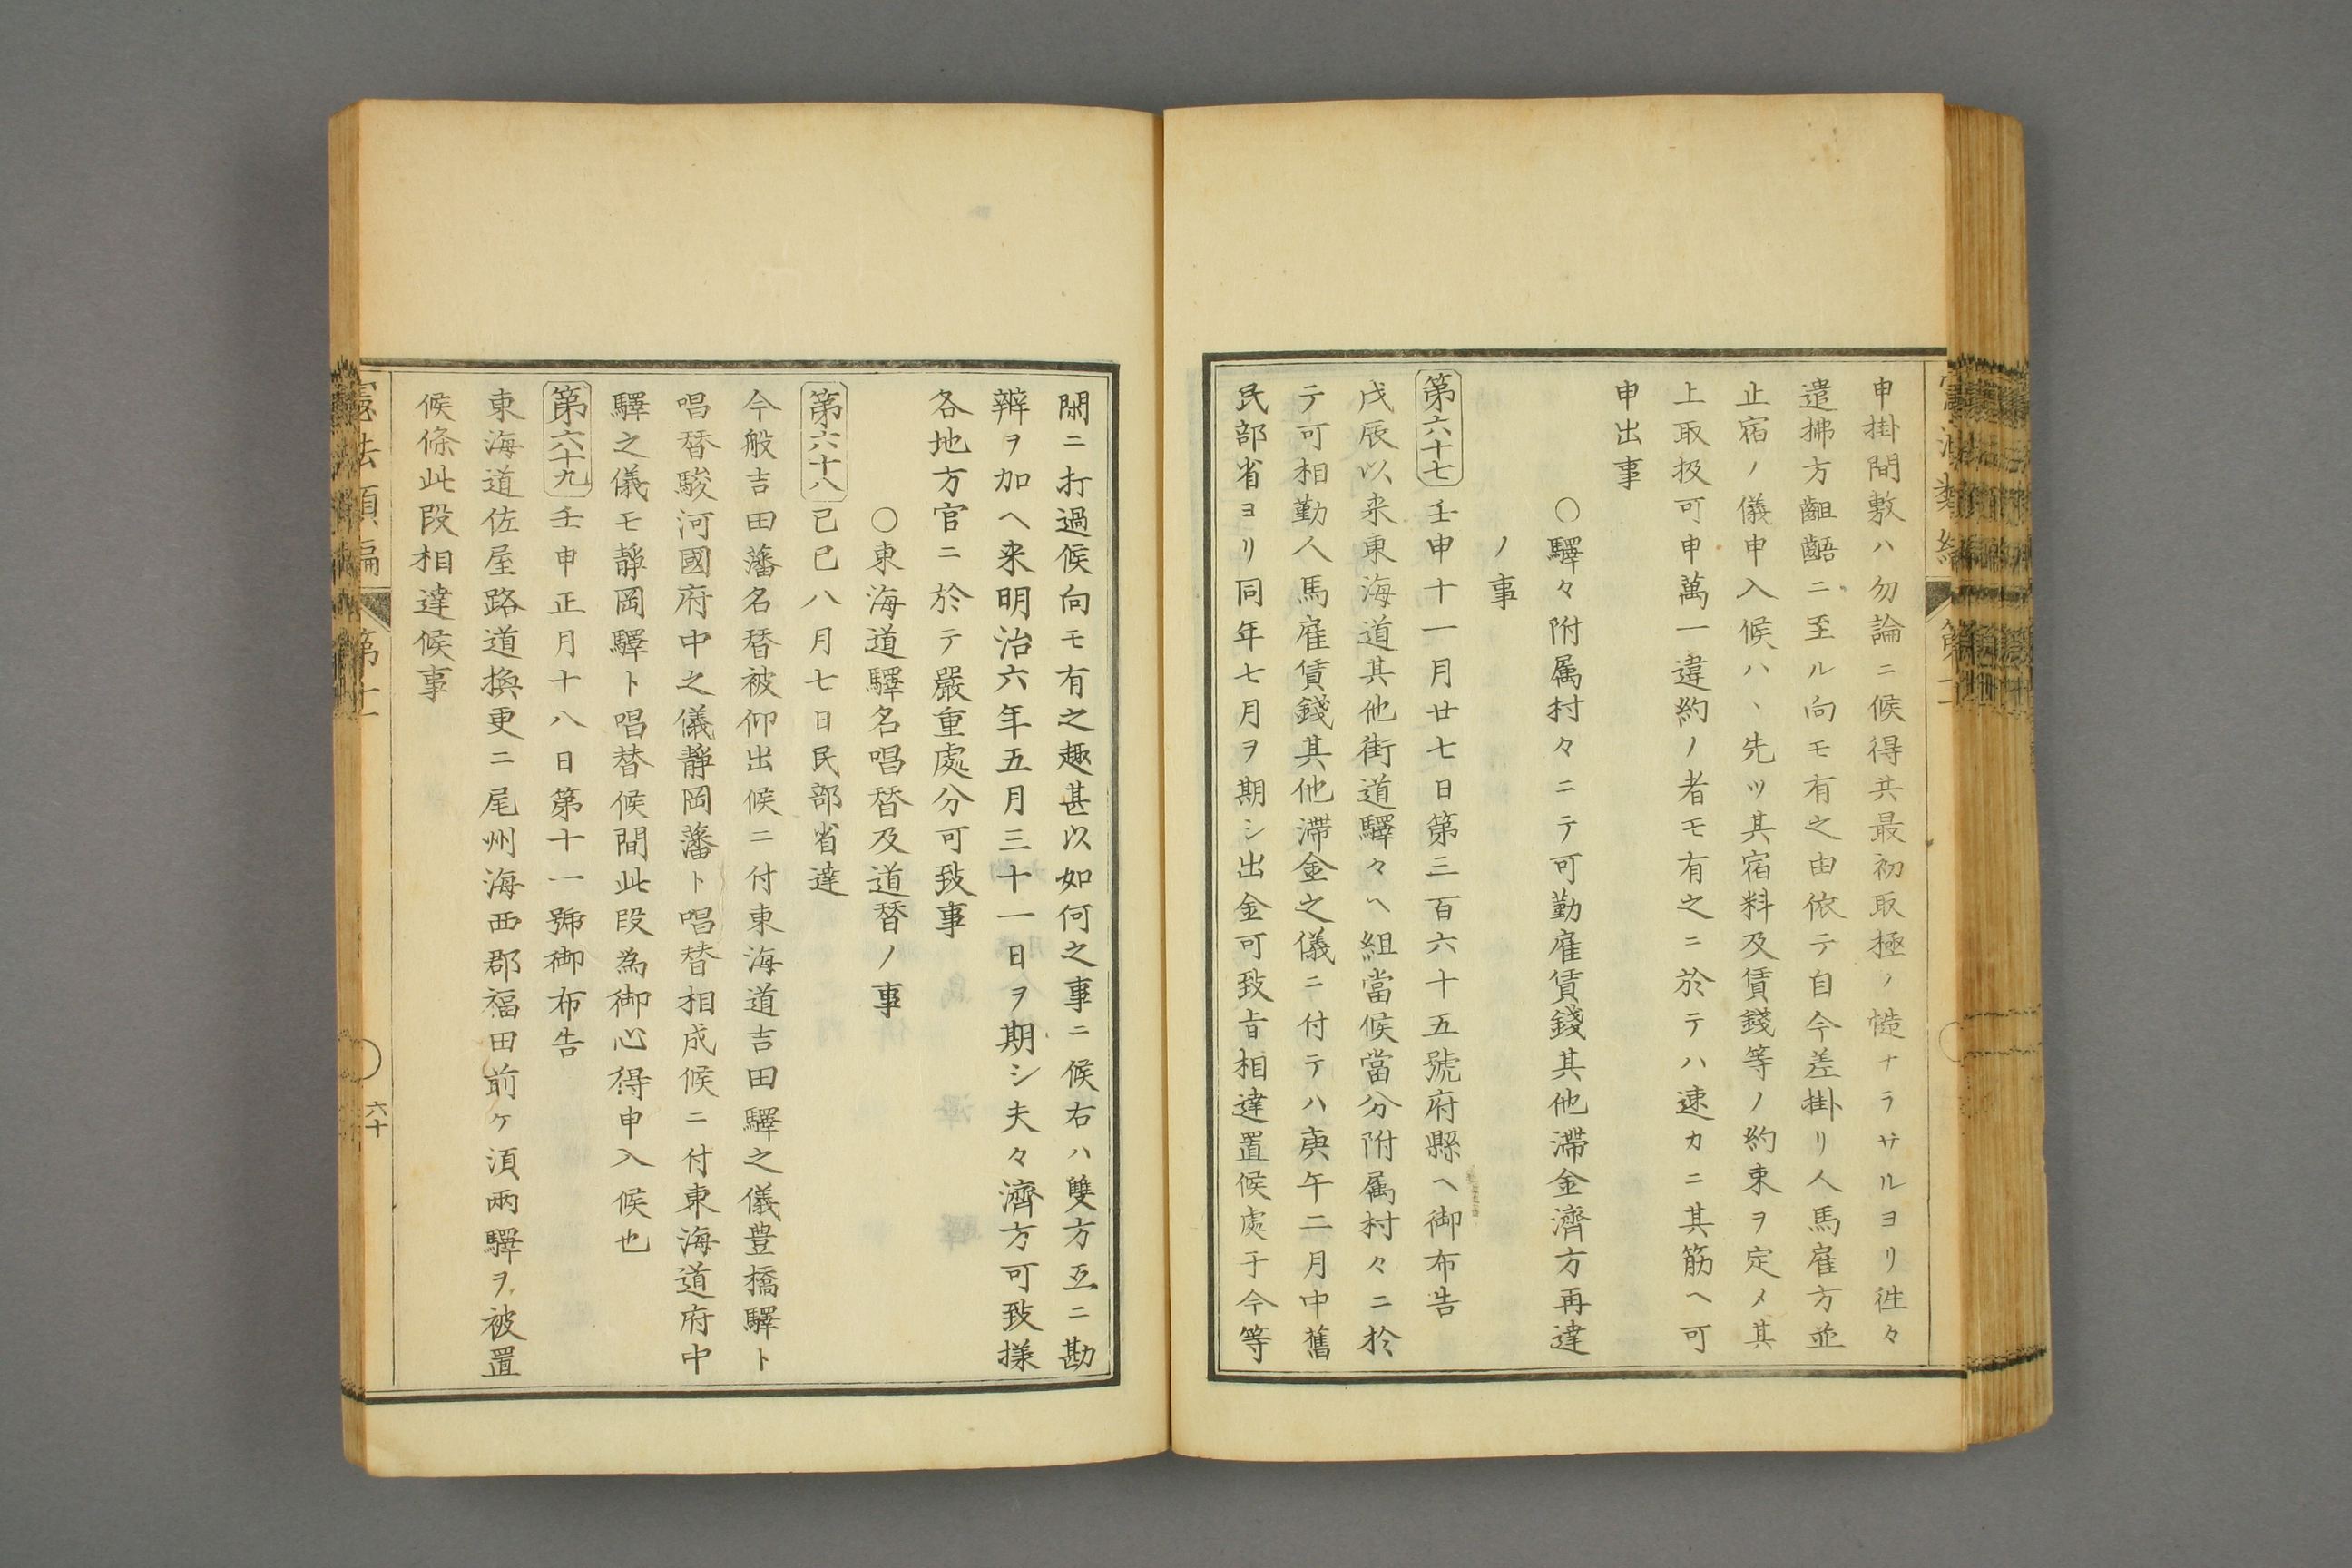 申掛間敷ハ勿論ニ候得共最初取極ノ慥ナラサルヨリ徃々
遣拂方齟齬ニ至ル向モ有之由依テ自今差掛リ人馬雇方並
止宿ノ儀申入候ハヽ先ツ其宿料及賃錢等ノ約束ヲ定メ其
上取扱可申萬一違約ノ者モ有之ニ於テハ速カニ其筋ヘ可
申出事
○驛々附属村々ニテ可勤雇賃錢其他滯金濟方再達
ノ事
第六十七壬申十一月廿七日第三百六十五號府縣ヘ御布告
戊辰以来東海道其他街道驛々ヘ組當候當分附属村々ニ於
テ可相勤人馬雇賃錢其他滯金之儀ニ付テハ庚午二月中舊
民部省ヨリ同年七月ヲ期シ出金可致旨相達置候處于今等
閑ニ打過候向モ有之趣甚以如何之事ニ候右ハ雙方互ニ勘
辨ヲ加ヘ来明治六年五月三十一日ヲ期シ夫々濟方可致様
各地方官ニ於テ嚴重處分可致事
○東海道驛名唱替及道替ノ事
第六十八己巳八月七日民部省達
今般吉田藩名替被仰出候ニ付東海道吉田驛之儀豊橋驛ト
唱替駿河國府中之儀靜岡藩ト唱替相成候ニ付東海道府中
驛之儀モ靜岡驛ト唱替候間此段為御心得申入候也
第六十九壬申正月十八日第十一號御布告
東海道佐屋路道換更ニ尾州海西郡福田前ケ須兩驛ヲ被置
候條此段相達候事
憲法類編 第十 六十